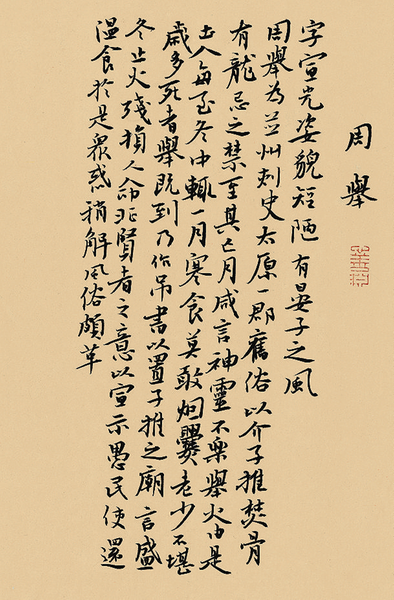 周舉
字宣光姿貌短陋有晏子之風
周舉為並州刺史太原一郡舊俗以介子推焚骨
有龍忌之禁至其亡月咸言神靈不樂舉火由是
士人每至冬中輒一月寒食莫敢烟爨老少不堪
歲多死者舉既到乃作吊書以置子推之廟言盛
冬止火殘損人命非賢者之意以宣示愚民使還
溫食於是眾惑稍解風俗頗革